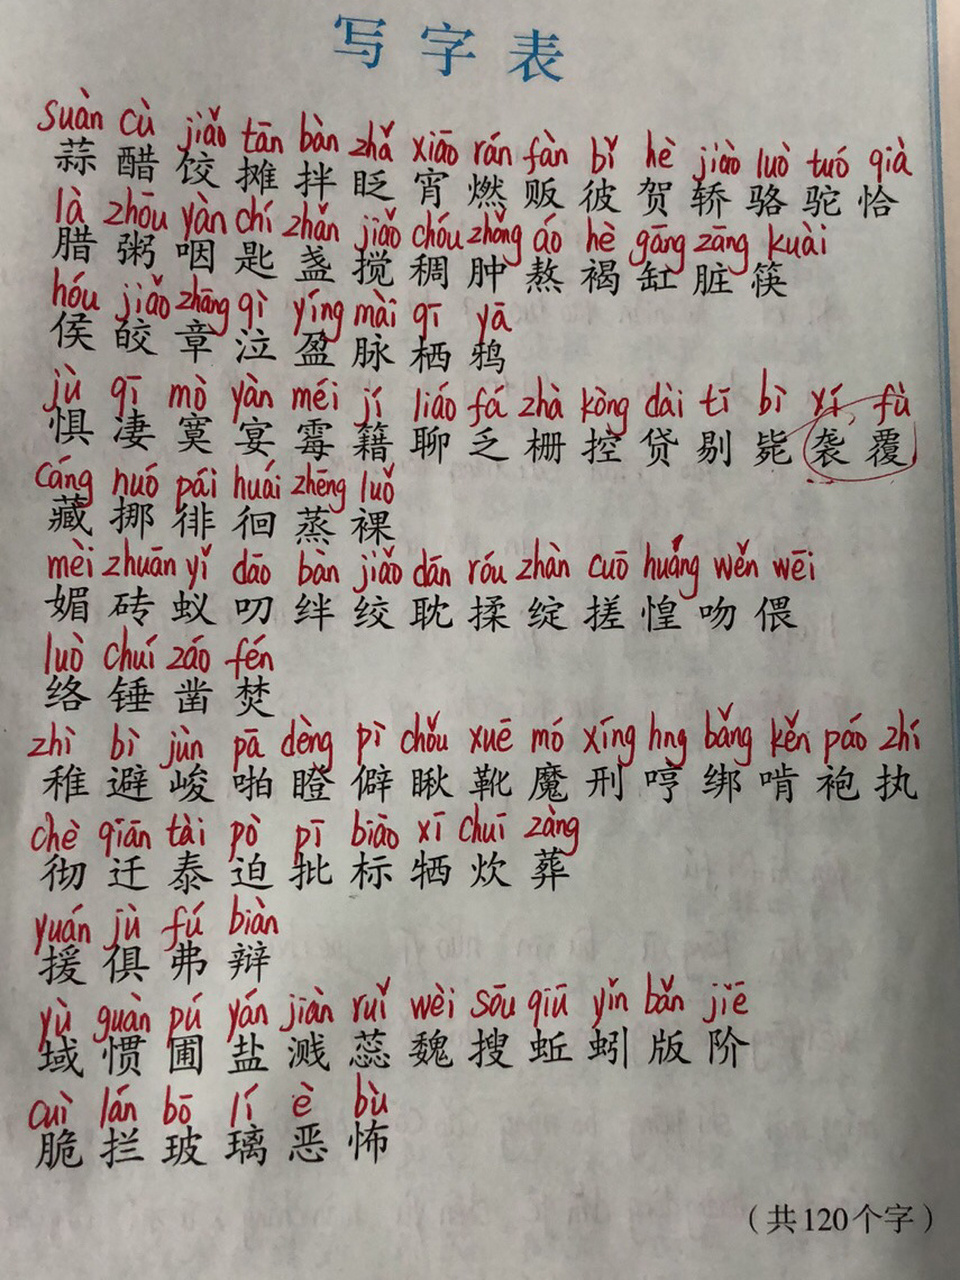 写字表
suàn cù jiǎo tān bàn zhǎ xiāo rán fàn bǐ hè jiào luò tuó qià
蒜 醋 饺 摊 拌 眨 宵 燃 贩 彼 贺 轿 骆 驼 恰
là zhōu yàn chí zhǎn jiǎo chóu zhǒng áo hè gāng zāng kuài
腊 粥 咽 匙 盏 搅 稠 肿 熬 褐 缸 脏 筷
hóu jiǎo zhāng qì yíng mài qī yā
侯 皎 章 泣 盈 脉 栖 鸦
jù qī mò yàn méi jí liáo fá zhà kòng dài tī bì xí fù
惧 凄 寞 宴 霉 籍 聊 乏 栅 控 贷 剔 毙 袭 覆
cáng nuó pái huái zhēng luǒ
藏 挪 徘 徊 蒸 裸
mèi zhuān yǐ dāo bàn jiǎo dān róu zhàn cuō huáng wěn wēi
媚 砖 蚁 叨 绊 绞 耽 揉 绽 搓 惶 吻 偎
luò chuí záo fén
络 锤 凿 焚
zhì bì jùn pā dèng pì chǒu xuē mó xíng hng bǎng kěn páo zhí
稚 避 峻 啪 瞪 僻 瞅 靴 魔 刑 哼 绑 啃 袍 执
chè qiān tài pò pī biāo xī chuī zàng
彻 迁 泰 迫 批 标 牺 炊 葬
yuán jù fú biàn
援 俱 弗 辩
yù guàn pú yán jiàn ruǐ wèi sōu qiū yǐn bǎn jiē
域 惯 圃 盐 溅 蕊 魏 搜 蚯 蚓 版 阶
cuì lán bō lí è bù
脆 拦 玻 璃 恶 怖
（共120个字）